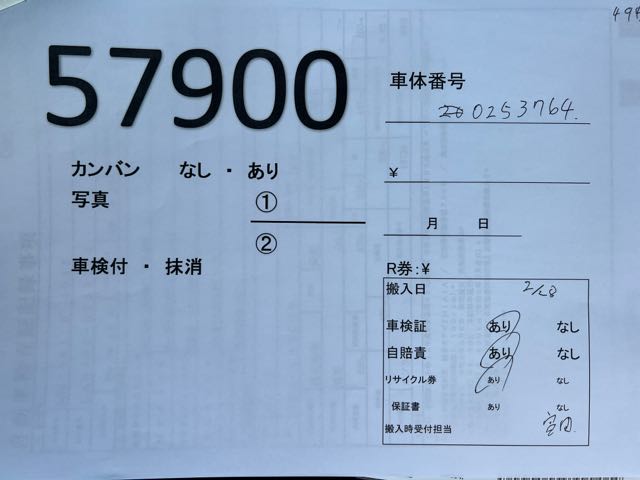 494
57900
車体番号
0253764.
カンバン なし ・ あり
¥
写真 ①
②
月 日
車検付 ・ 抹消
R券:¥
搬入日 2/28
車検証 あり なし
自賠責 あり なし
リサイクル券 あり なし
保証書 あり なし
搬入時受付担当